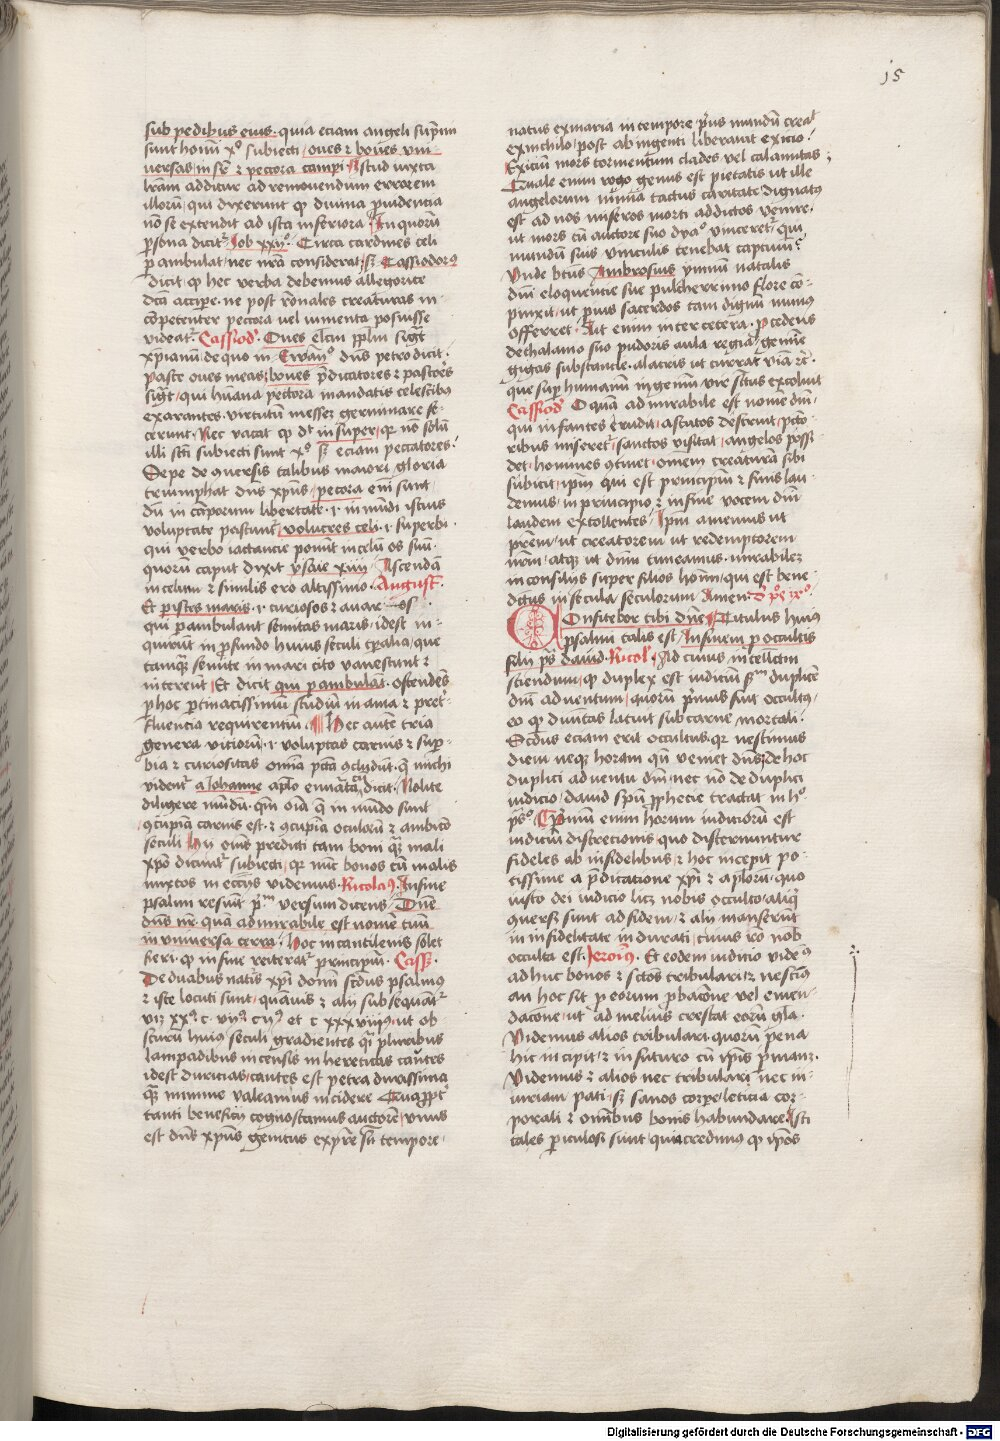 15
sub pedibus eius. quia eciam angeli supremi
sunt homini xpo subiecti oues et boues vni
uersas insuper et pecora campi Istud iuxta
litteram additur ad remouendum errorem
illorum qui dixerunt quod diuina prouidencia
non se extendit ad ista inferiora In quorum
persona dicitur Iob xxijo. Circa cardines celi
perambulat nec nostra considerat sed Cassiodorus
dicit quod hec verba debemus allegorice
dicta accipere. ne post racionales creaturas in
competenter pecora vel iumenta posuisse
videatur. Cassiod. Oues
xpianum de quo in dominus petro dicit.
Pasce oues meas boues predicatores et pastores
qui humana pectora mandatis celestibus
exarantes. virtutum messes germinare fe
cerunt. Nec vacat quod dicit insuper quia non solum
illi sancti subiecti sunt xpo sed eciam peccatores.
Sepe de conuersis talibus maiori gloria
triumphat dominus xpus pecora enim sunt
dum in camporum libertate .i. in mundi istius
voluptate pascuntur volucres celi .i. superbi
qui verbo iactancie ponunt in celum os suum.
quorum caput dixit ysaie xiiij Ascendam
in celum et similis ero altissimo. August.
Et pisces maris .i. curiosos et
qui perambulant semitas maris. idest in
quirunt in profundo huius seculi temporalia que
tamquam semite in mari cito vanescunt et
intereunt Et dicit qui perambulant. ostendens
per hoc pertinacissimum studium inania et preter
fluencia requirencium. Hec autem tria
genera viciorum .i. voluptas carnis et super
bia et curiositas omnia peccata concludunt. que michi
videntur a Iohanne apostolo enumerata dicit. Nolite
diligere mundum. quoniam omnia que in mundo sunt
concupiscencia carnis est et concupiscencia oculorum et ambicio
seculi Hii omnes predicti tam boni quam mali
xpo dicuntur subiecti quia nunc bonos cum malis
mixtos in ecclesiis videmus. Nicolaus. In fine
psalmi resumit primum versum dicens Domine
dominus noster. quam admirabile est nomen tuum
in vniuersa terra Hoc in cantilenis solet
fieri quod in fine reiteratur principium. Cass.
De duabus naturis xpi domini secundus psalmus
et iste locuti sunt quamuis et alij subsequantur
viz xxus c. viijus cijus et c xxxviijus ut ob
scurum huius seculi gradientes quasi pluribus
lampadibus incensis in hereticas cautes
idest duricias cautes est petra durissima
quam minime valeamus incidere Cuius propter
tanti beneficij cognoscamus auctorem vnus
est dominus xpus genitus ex patre sine tempore.
natus ex maria in tempore prius mundum creauit
ex nichilo post ab ingenti liberauit exicio
Exicium mors tormentum clades vel calamitas
Quale enim rogo genus est pietatis ut ille
angelorum nimia tactus caritate dignatus
est ad nos miseros morti addictos venire.
ut mors cum auctore suo dyabolo vinceretur qui
mundum suis vinculis tenebat captiuum.
Vnde beatus Ambrosius ymnum natalis
domini eloquencie sue pulcherrimo flore com
pinxit ut pius sacerdos tam dignum munus
offerret. Ait enim inter cetera. procedens
de thalamo suo pudoris aula regia gemine
gigas substancie. alacris ut currat viam etc.
que super humanum ingenium vir sanctus excoluit
Cassiod O quam admirabile est nomen domini
qui infantes erudit astutos destruit pecca
toribus miseretur sanctos visitat angelos possi
det homines continet omnem creaturam sibi
subicit ipsum qui est principium et finis lau
demus in principio et in fine vocem domini
laudem extollentes Ipsum amemus ut
patrem ut creatorem ut redemptorem
nostrum atque ut dominum timeamus. mirabilem
in consiliis super filios hominum qui est bene
dictus in secula seculorum Amen.
Confitebor tibi domine Titulus huius
psalmi talis est In finem pro occultis
filij psalmus dauid. Nicol. Ad cuius intellectum
sciendum quod duplex est iudicium secundum duplicem
domini aduentum quorum primus fuit occultus
eo quod diuinitas latuit sub carne mortali.
Secundus eciam erit occultus quia nescimus
diem neque horam quando veniet dominus de hoc
duplici aduentu domini nec non de duplici
iudicio dauid spiritu prophecie tractat in hoc
psalmo. Primum enim horum iudiciorum est
iudicium discrecionis quo discernuntur
fideles ab infidelibus et hoc incepit po
tissime a predicatione xpi et apostolorum quo
iusto dei iudicio licet nobis occulto aliqui
conuersi sunt ad fidem et alij manserunt
in infidelitate indurati cuius racio nobis
occulta est. Ieronimus. Et eodem iudicio videmus
adhuc bonos et sanctos tribulari et nescimus
an hoc sit per eorum probacionem vel emen
dacionem ut ad melius crescat eorum gloria.
Videmus alios tribulari quorum pena
hic incipit et in futuro cum ipsis permanet.
Videmus et alios nec tribulari nec in
iuriam pati sed sanos corpore leticia cor
porali et omnibus bonis habundare Isti
tales periculosi sunt quia credimus quod ipsos
Digitalisierung gefördert durch die Deutsche Forschungsgemeinschaft - DFG